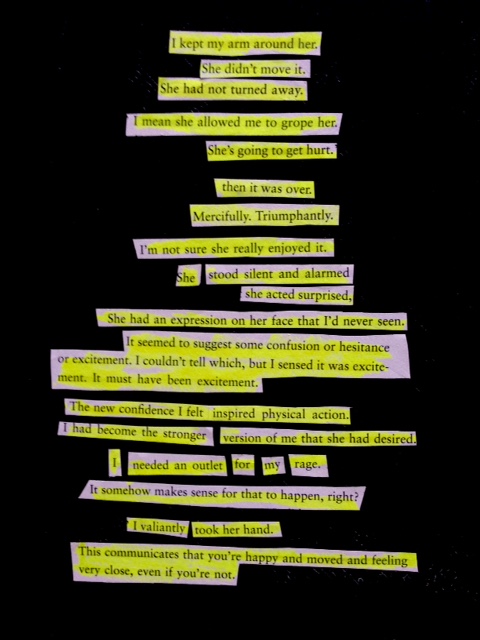 I kept my arm around her.
She didn't move it.
She had not turned away.
I mean she allowed me to grope her.
She's going to get hurt.
then it was over.
Mercifully. Triumphantly.
I'm not sure she really enjoyed it.
She stood silent and alarmed
she acted surprised,
She had an expression on her face that I'd never seen.
It seemed to suggest some confusion or hesitance
or excitement. I couldn't tell which, but I sensed it was excite-
ment. It must have been excitement.
The new confidence I felt inspired physical action.
I had become the stronger version of me that she had desired.
I needed an outlet for my rage.
It somehow makes sense for that to happen, right?
I valiantly took her hand.
This communicates that you're happy and moved and feeling
very close, even if you're not.